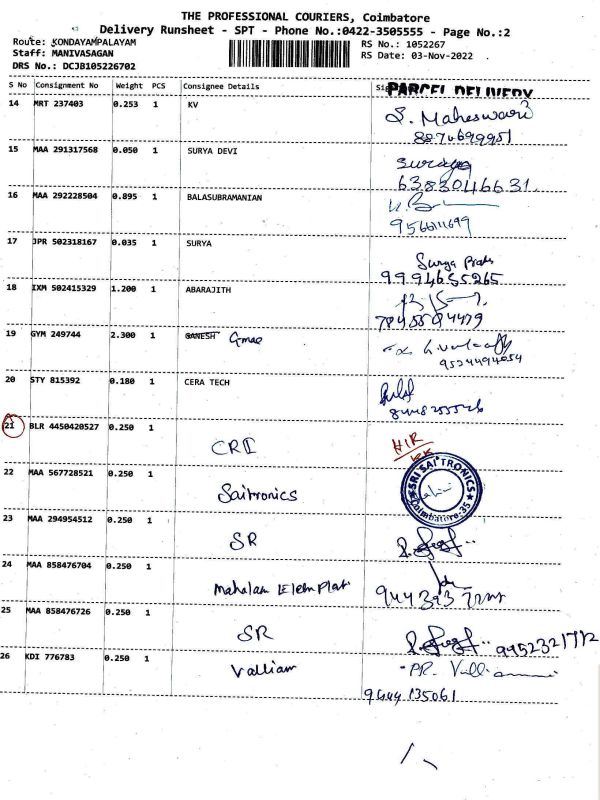 THE PROFESSIONAL COURIERS, Coimbatore
Delivery Runsheet - SPT - Phone No.:0422-3505555 - Page No.:2
Route: KONDAYAMPALAYAM
Staff: MANIVASAGAN
DRS No.: DCJB105226702
RS No.: 1052267
RS Date: 03-Nov-2022
S No Consignment No Weight PCS Consignee Details
PARCEL DELIVERY
14 MRT 237403 0.253 1 KV S. Maheswari
8870699951
15 MAA 291317568 0.050 1 SURYA DEVI
6383046631
16 MAA 292228504 0.895 1 BALASUBRAMANIAN
9566111699
17 JPR 502318167 0.035 1 SURYA Surya
9994655265
18 IXM 502415329 1.200 1 ABARAJITH
19 GYM 249744 2.300 1 GANESH
9524494054
20 STY 815392 0.180 1 CERA TECH
21 BLR 4450420527 0.250 1 CRI
22 MAA 567728521 0.250 1 Saitronics SRI SAI TRONICS
Coimbatore-35
23 MAA 294954512 0.250 1 SR
24 MAA 858476704 0.250 1
25 MAA 858476726 0.250 1 SR 9952321772
26 KDI 776783 0.250 1 Valliam PR. Valliammai
9444135061